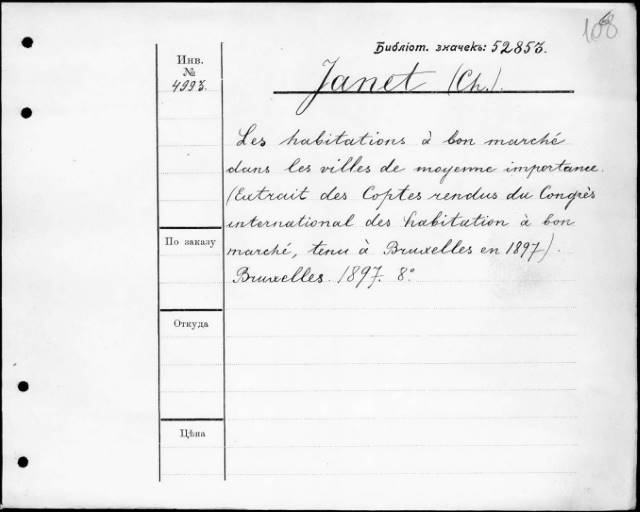 108
Библіот. значекъ: 52853.
Инв.
№
4993.
Janet (Ch.).
Les habitations à bon marché
dans les villes de moyenne importance.
(Extrait des Coptes rendus du Congrès
international des habitation à bon
marché, tenu à Bruxelles en 1897).
Bruxelles. 1897. 8°
По заказу
Откуда
Цѣна